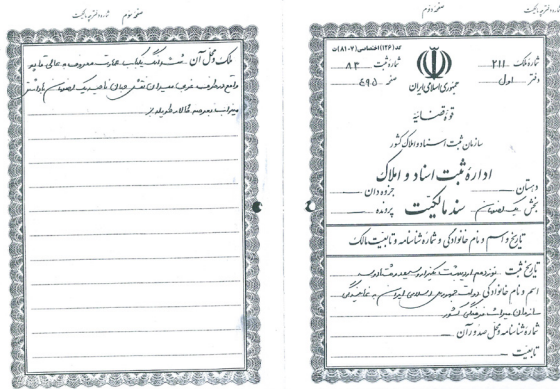 صفحهٔ دوم
کد (۱۲۶) اختصاصی (۸۱۰۷) ت
شمارهٔ ملک ۲۱۱
شمارهٔ ثبت ۸۳
دفتر اول
صفحه ۴۹۵
جمهوری اسلامی ایران
قوهٔ قضائیه
سازمان ثبت اسناد و املاک کشور
ادارهٔ ثبت اسناد و املاک
دهستان
جزوه دان
بخش یک اصفهان
سند مالکیت
پرونده
تاریخ و اسم و نام خانوادگی و شمارهٔ شناسنامه و تابعیت مالک
تاریخ ثبت نوزدهم اردیبهشت یکهزار و سیصد و هشتاد و سه
اسم و نام خانوادگی دولت جمهوری اسلامی ایران به نمایندگی
سازمان میراث فرهنگی کشور
شمارهٔ شناسنامه و محل صدور آن
تابعیت
صفحهٔ سوم
شماره دفترچه مالکیت
ملک و محل آن ششدانگ یکباب عمارت معروف به عالی قاپو
واقع در طرف غربی میدان نقش جهان ناحیه یک اصفهان